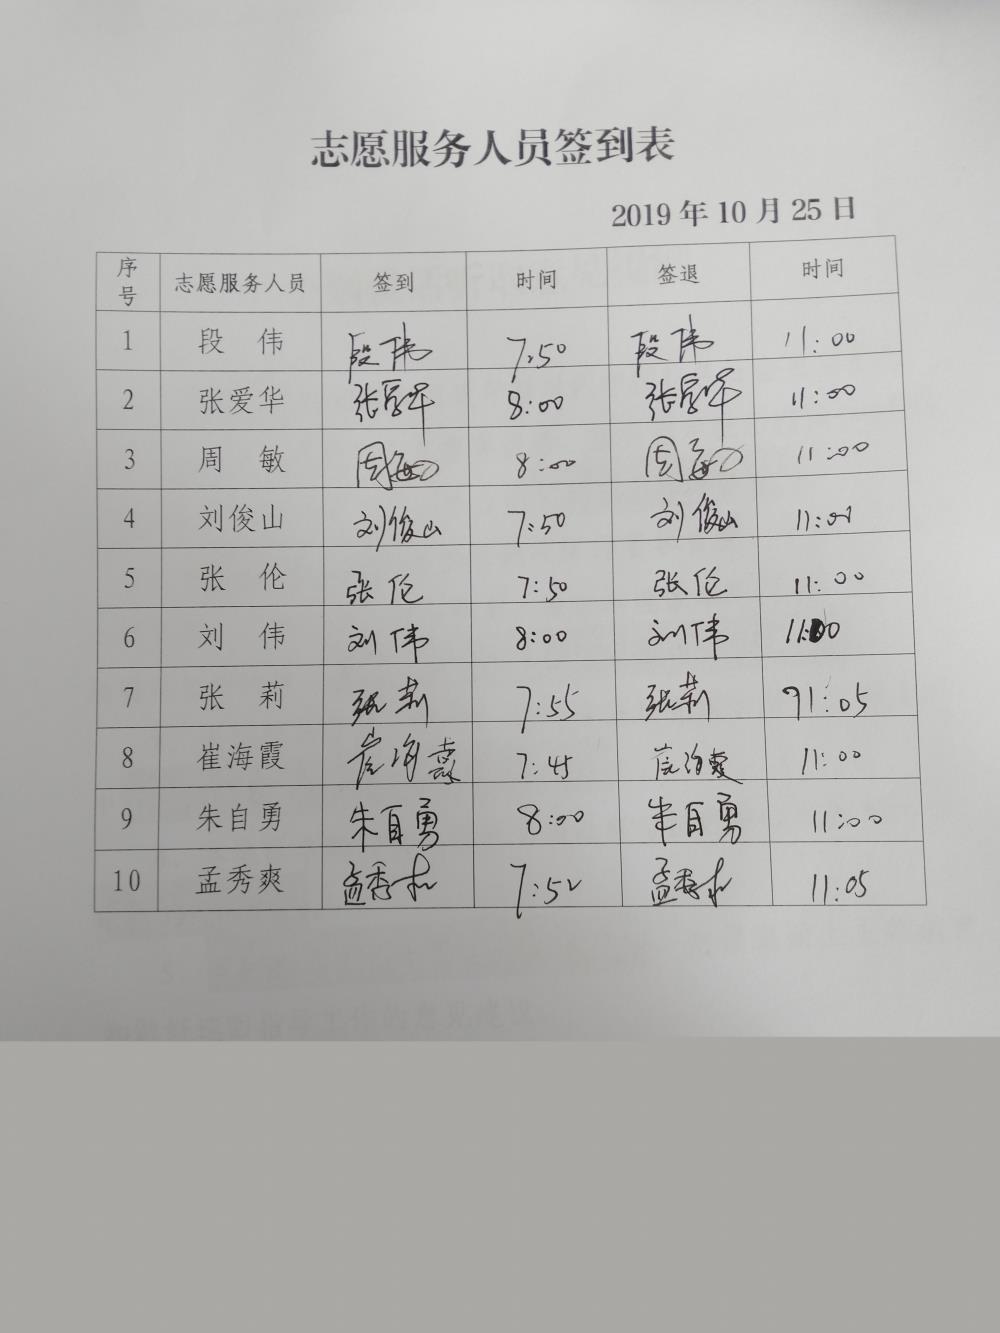 志愿服务人员签到表
2019年10月25日
序号 志愿服务人员 签到 时间 签退 时间
1 段 伟 段伟 7:50 段伟 11:00
2 张爱华 张爱华 8:00 张爱华 11:00
3 周 敏 周敏 8:00 周敏 11:00
4 刘俊山 刘俊山 7:50 刘俊山 11:01
5 张 伦 张伦 7:50 张伦 11:00
6 刘 伟 刘伟 8:00 刘伟 11:00
7 张 莉 张莉 7:55 张莉 11:05
8 崔海霞 崔海霞 7:45 崔海霞 11:00
9 朱自勇 朱自勇 8:00 朱自勇 11:00
10 孟秀爽 孟秀爽 7:52 孟秀爽 11:05